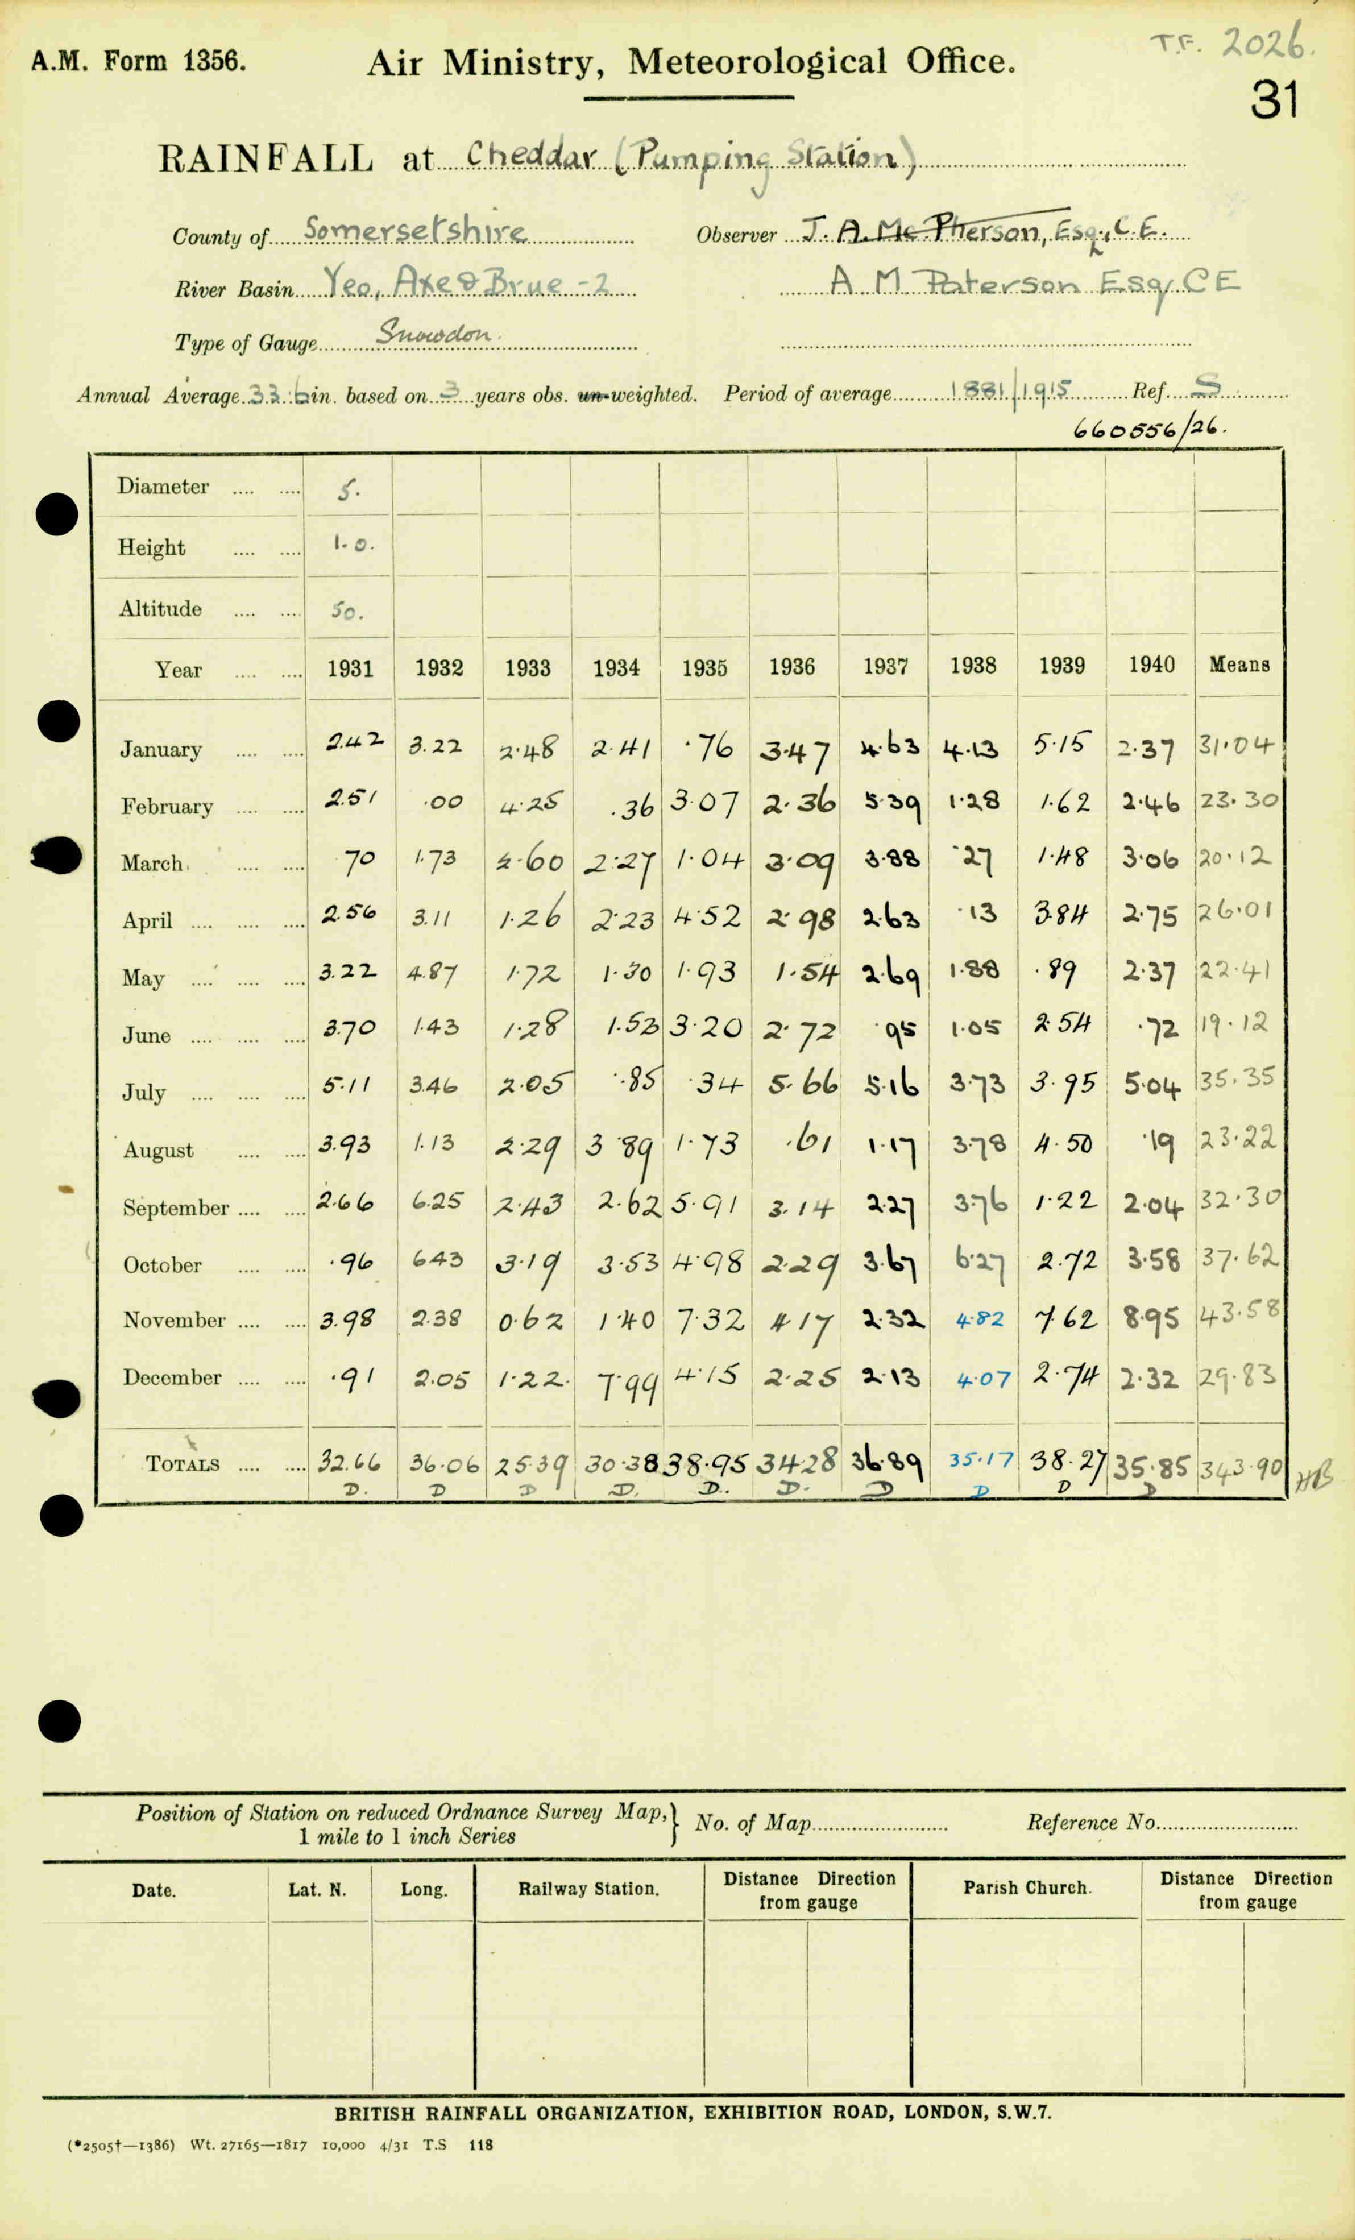 T.F. 2026.
A.M. Form 1356. Air Ministry, Meteorological Office.
31
RAINFALL at Cheddar (Pumping Station)
County of Somersetshire Observer J. A. McPherson, Esq., C.E.
River Basin Yeo, Axe & Brue -2 A M Paterson Esq CE
Type of Gauge Snowdon.
Annual Average 33.6 in. based on 3 years obs. un-weighted. Period of average 1881/1915 Ref. S
660556/26.
Diameter .... .... 5.
Height .... .... 1.0.
Altitude .... .... 50.
Year .... .... 1931 1932 1933 1934 1935 1936 1937 1938 1939 1940 Means
January .... .... 2.42 3.22 2.48 2.41 .76 3.47 4.63 4.13 5.15 2.37 31.04
February .... .... 2.51 .00 4.25 .36 3.07 2.36 5.39 1.28 1.62 2.46 23.30
March .... .... 70 1.73 2.60 2.27 1.04 3.09 3.88 .27 1.48 3.06 20.12
April .... .... .... 2.56 3.11 1.26 2.23 4.52 2.98 2.63 .13 3.84 2.75 26.01
May .... .... .... 3.22 4.87 1.72 1.30 1.93 1.54 2.69 1.88 .89 2.37 22.41
June .... .... .... 3.70 1.43 1.28 1.53 3.20 2.72 .95 1.05 2.54 .72 19.12
July .... .... .... 5.11 3.46 2.05 .85 .34 5.66 5.16 3.73 3.95 5.04 35.35
August .... .... 3.93 1.13 2.29 3 89 1.73 .61 1.17 3.78 4.50 .19 23.22
September .... .... 2.66 6.25 2.43 2.62 5.91 3.14 2.27 3.76 1.22 2.04 32.30
October .... .... .96 6.43 3.19 3.53 4.98 2.29 3.67 6.27 2.72 3.58 37.62
November .... .... 3.98 2.38 0.62 1.40 7.32 4.17 2.32 4.82 7.62 8.95 43.58
December .... .... .91 2.05 1.22. 7.99 4.15 2.25 2.13 4.07 2.74 2.32 29.83
TOTALS .... .... 32.66 36.06 25.39 30.38 38.95 34.28 36.89 35.17 38.27 35.85 343.90 HB
D. D D D. D. D. D D D D
Position of Station on reduced Ordnance Survey Map,} No. of Map Reference No.
1 mile to 1 inch Series
Date. Lat. N. Long. Railway Station. Distance Direction Parish Church. Distance Direction
from gauge from gauge
BRITISH RAINFALL ORGANIZATION, EXHIBITION ROAD, LONDON, S.W.7.
(*2505†—1386) Wt. 27165—1817 10,000 4/31 T.S 118